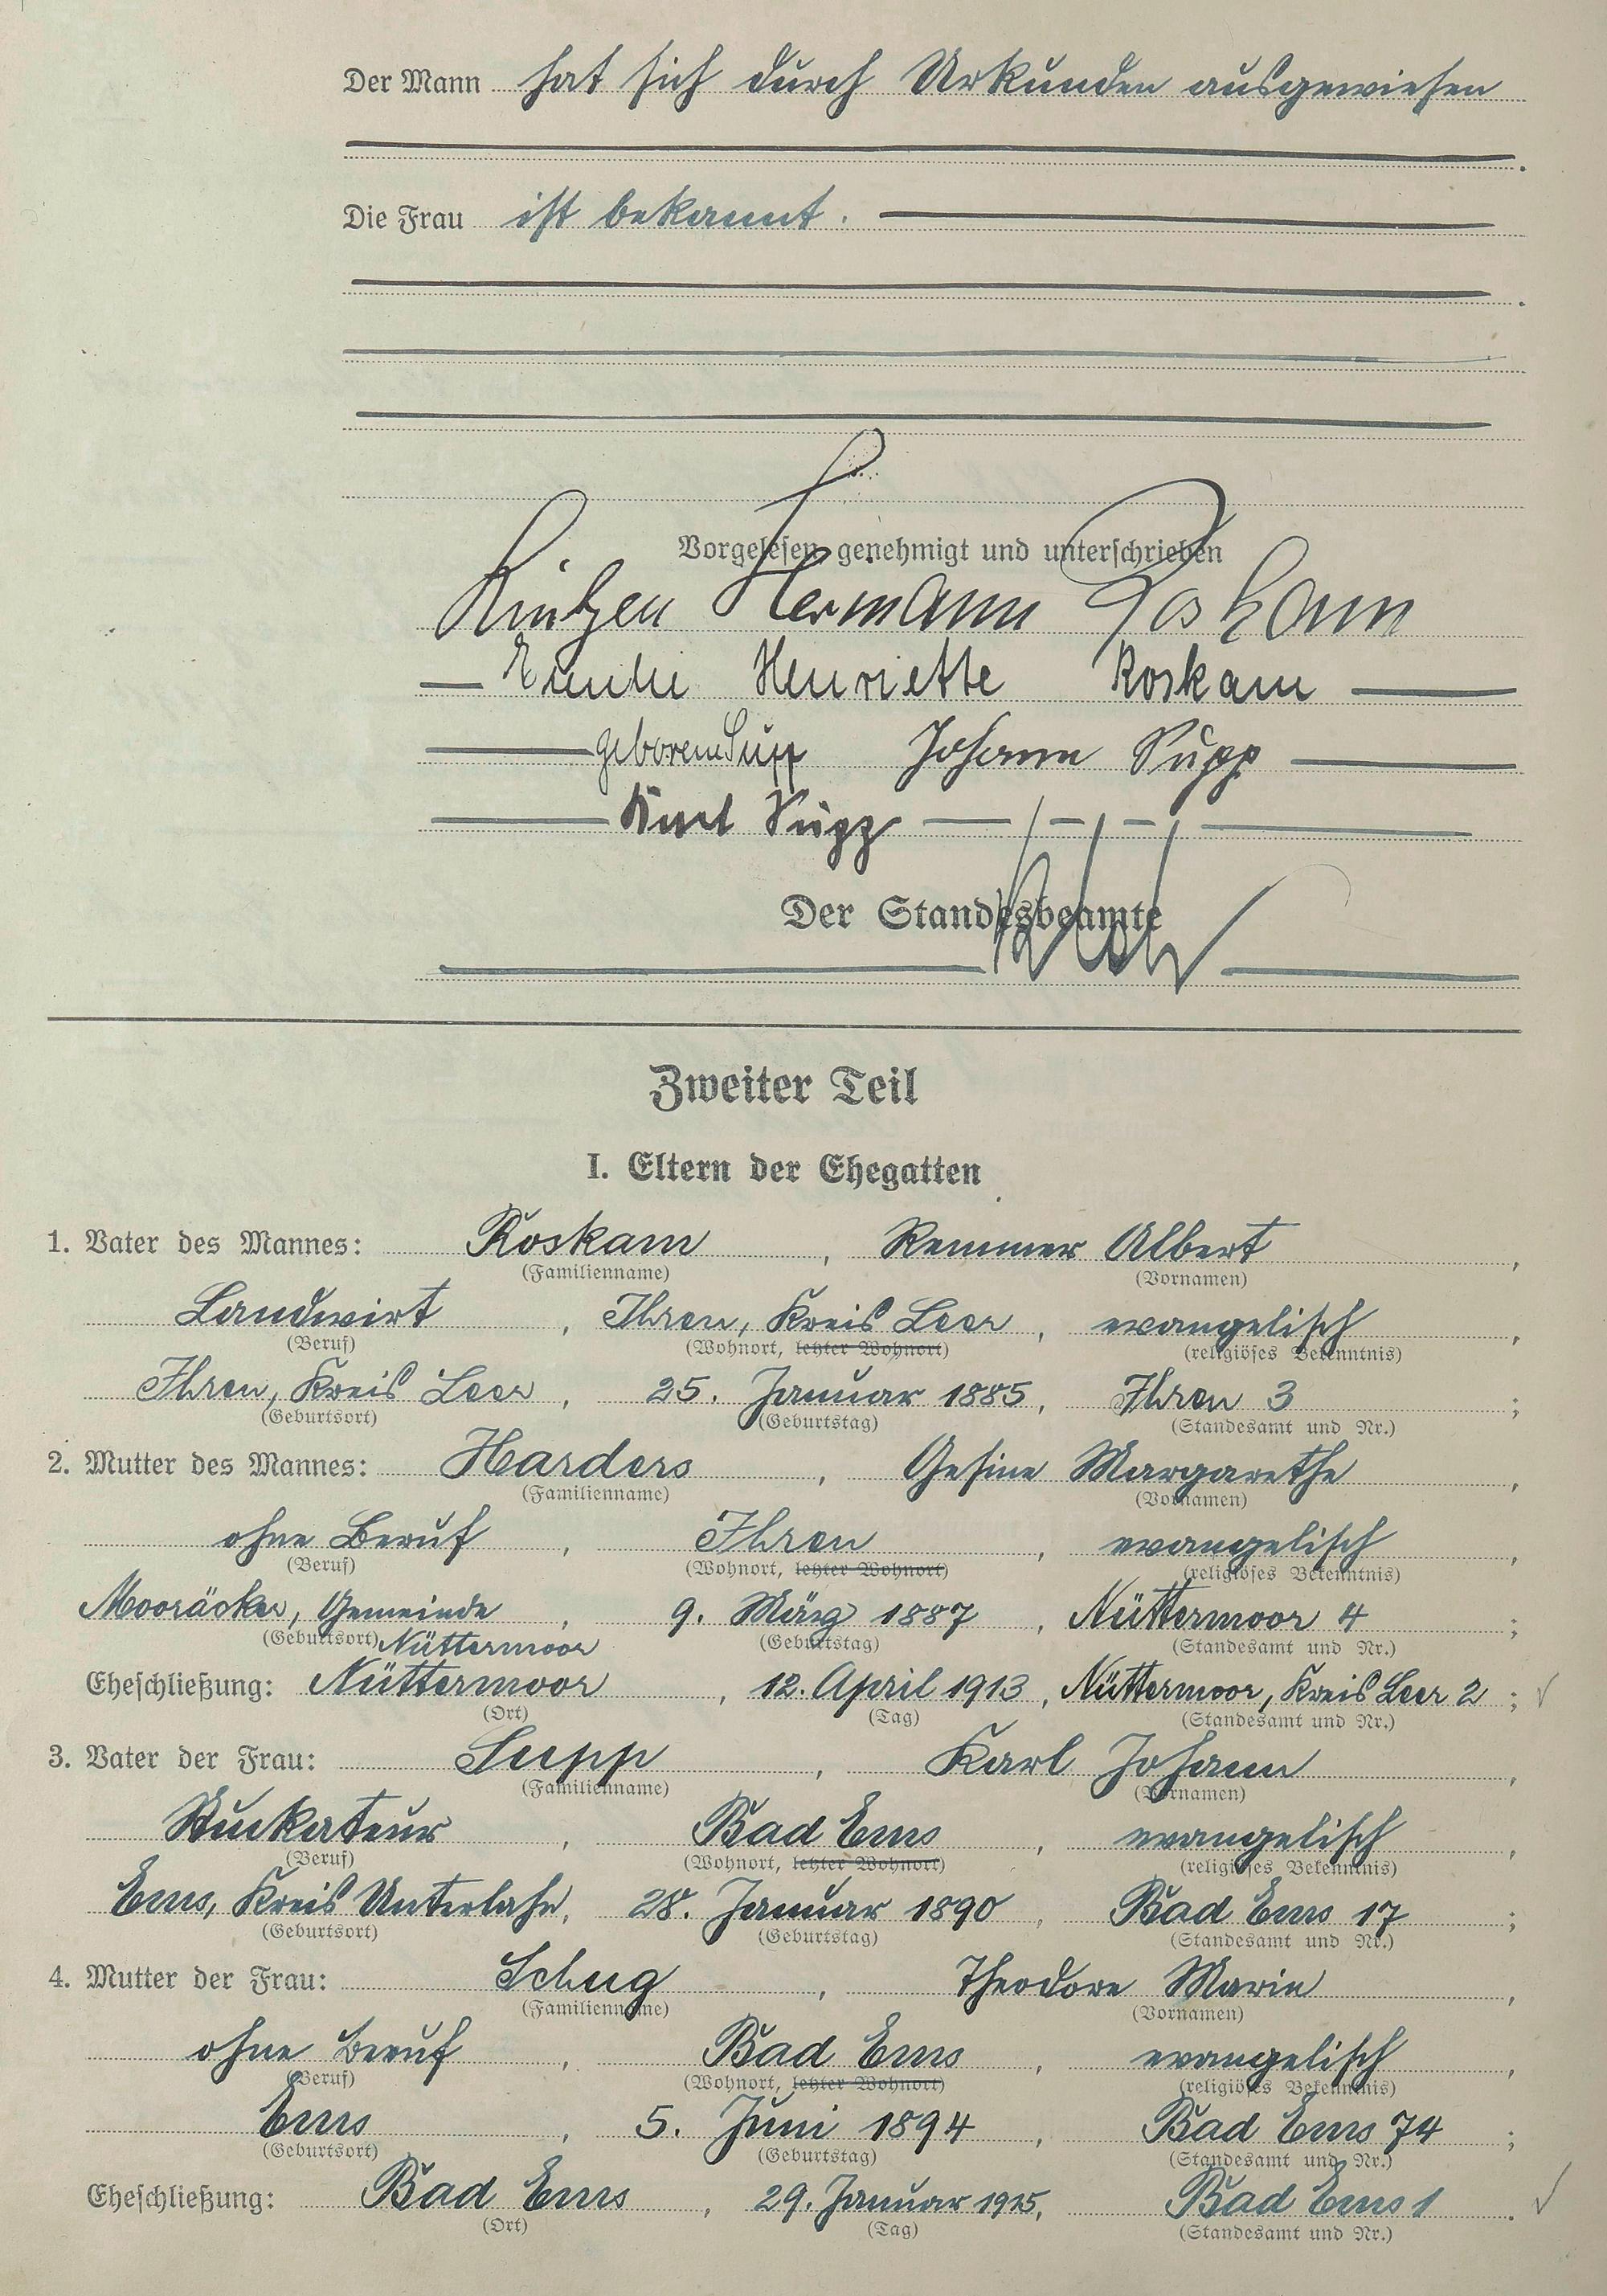 Der Mann hat sich durch Urkunden ausgewiesen
Die Frau ist bekannt.
Vorgelesen, genehmigt und unterschrieben
Hermann Roskam
Henriette Roskam
geborene Supp Johann Supp
Karl Supp
Der Standesbeamte
Zweiter Teil
I. Eltern der Ehegatten
1. Vater des Mannes: Roskam, Remmer Albert,
(Familienname) (Vornamen)
Landwirt, Ihren, Kreis Leer, evangelisch,
(Beruf) (Wohnort, letzter Wohnort) (religiöses Bekenntnis)
Ihren, Kreis Leer, 25. Januar 1885, Ihren 3;
(Geburtsort) (Geburtstag) (Standesamt und Nr.)
2. Mutter des Mannes: Harders, Gesine Margarethe,
(Familienname) (Vornamen)
ohne Beruf, Ihren, evangelisch,
(Beruf) (Wohnort, letzter Wohnort) (religiöses Bekenntnis)
Mooräcker, Gemeinde, 9. März 1887, Nüttermoor 4;
(Geburtsort) Nüttermoor (Geburtstag) (Standesamt und Nr.)
Eheschließung: Nüttermoor, 12. April 1913, Nüttermoor, Kreis Leer 2;
(Ort) (Tag) (Standesamt und Nr.)
3. Vater der Frau: Supp, Karl Johann,
(Familienname) (Vornamen)
Stuckateur, Bad Ems, evangelisch,
(Beruf) (Wohnort, letzter Wohnort) (religiöses Bekenntnis)
Ems, Kreis Unterlahn, 28. Januar 1890, Bad Ems 17;
(Geburtsort) (Geburtstag) (Standesamt und Nr.)
4. Mutter der Frau: Schug, Theodore Marie,
(Familienname) (Vornamen)
ohne Beruf, Bad Ems, evangelisch,
(Beruf) (Wohnort, letzter Wohnort) (religiöses Bekenntnis)
Ems, 5. Juni 1894, Bad Ems 74;
(Geburtsort) (Geburtstag) (Standesamt und Nr.)
Eheschließung: Bad Ems, 29. Januar 1915, Bad Ems 1.
(Ort) (Tag) (Standesamt und Nr.)